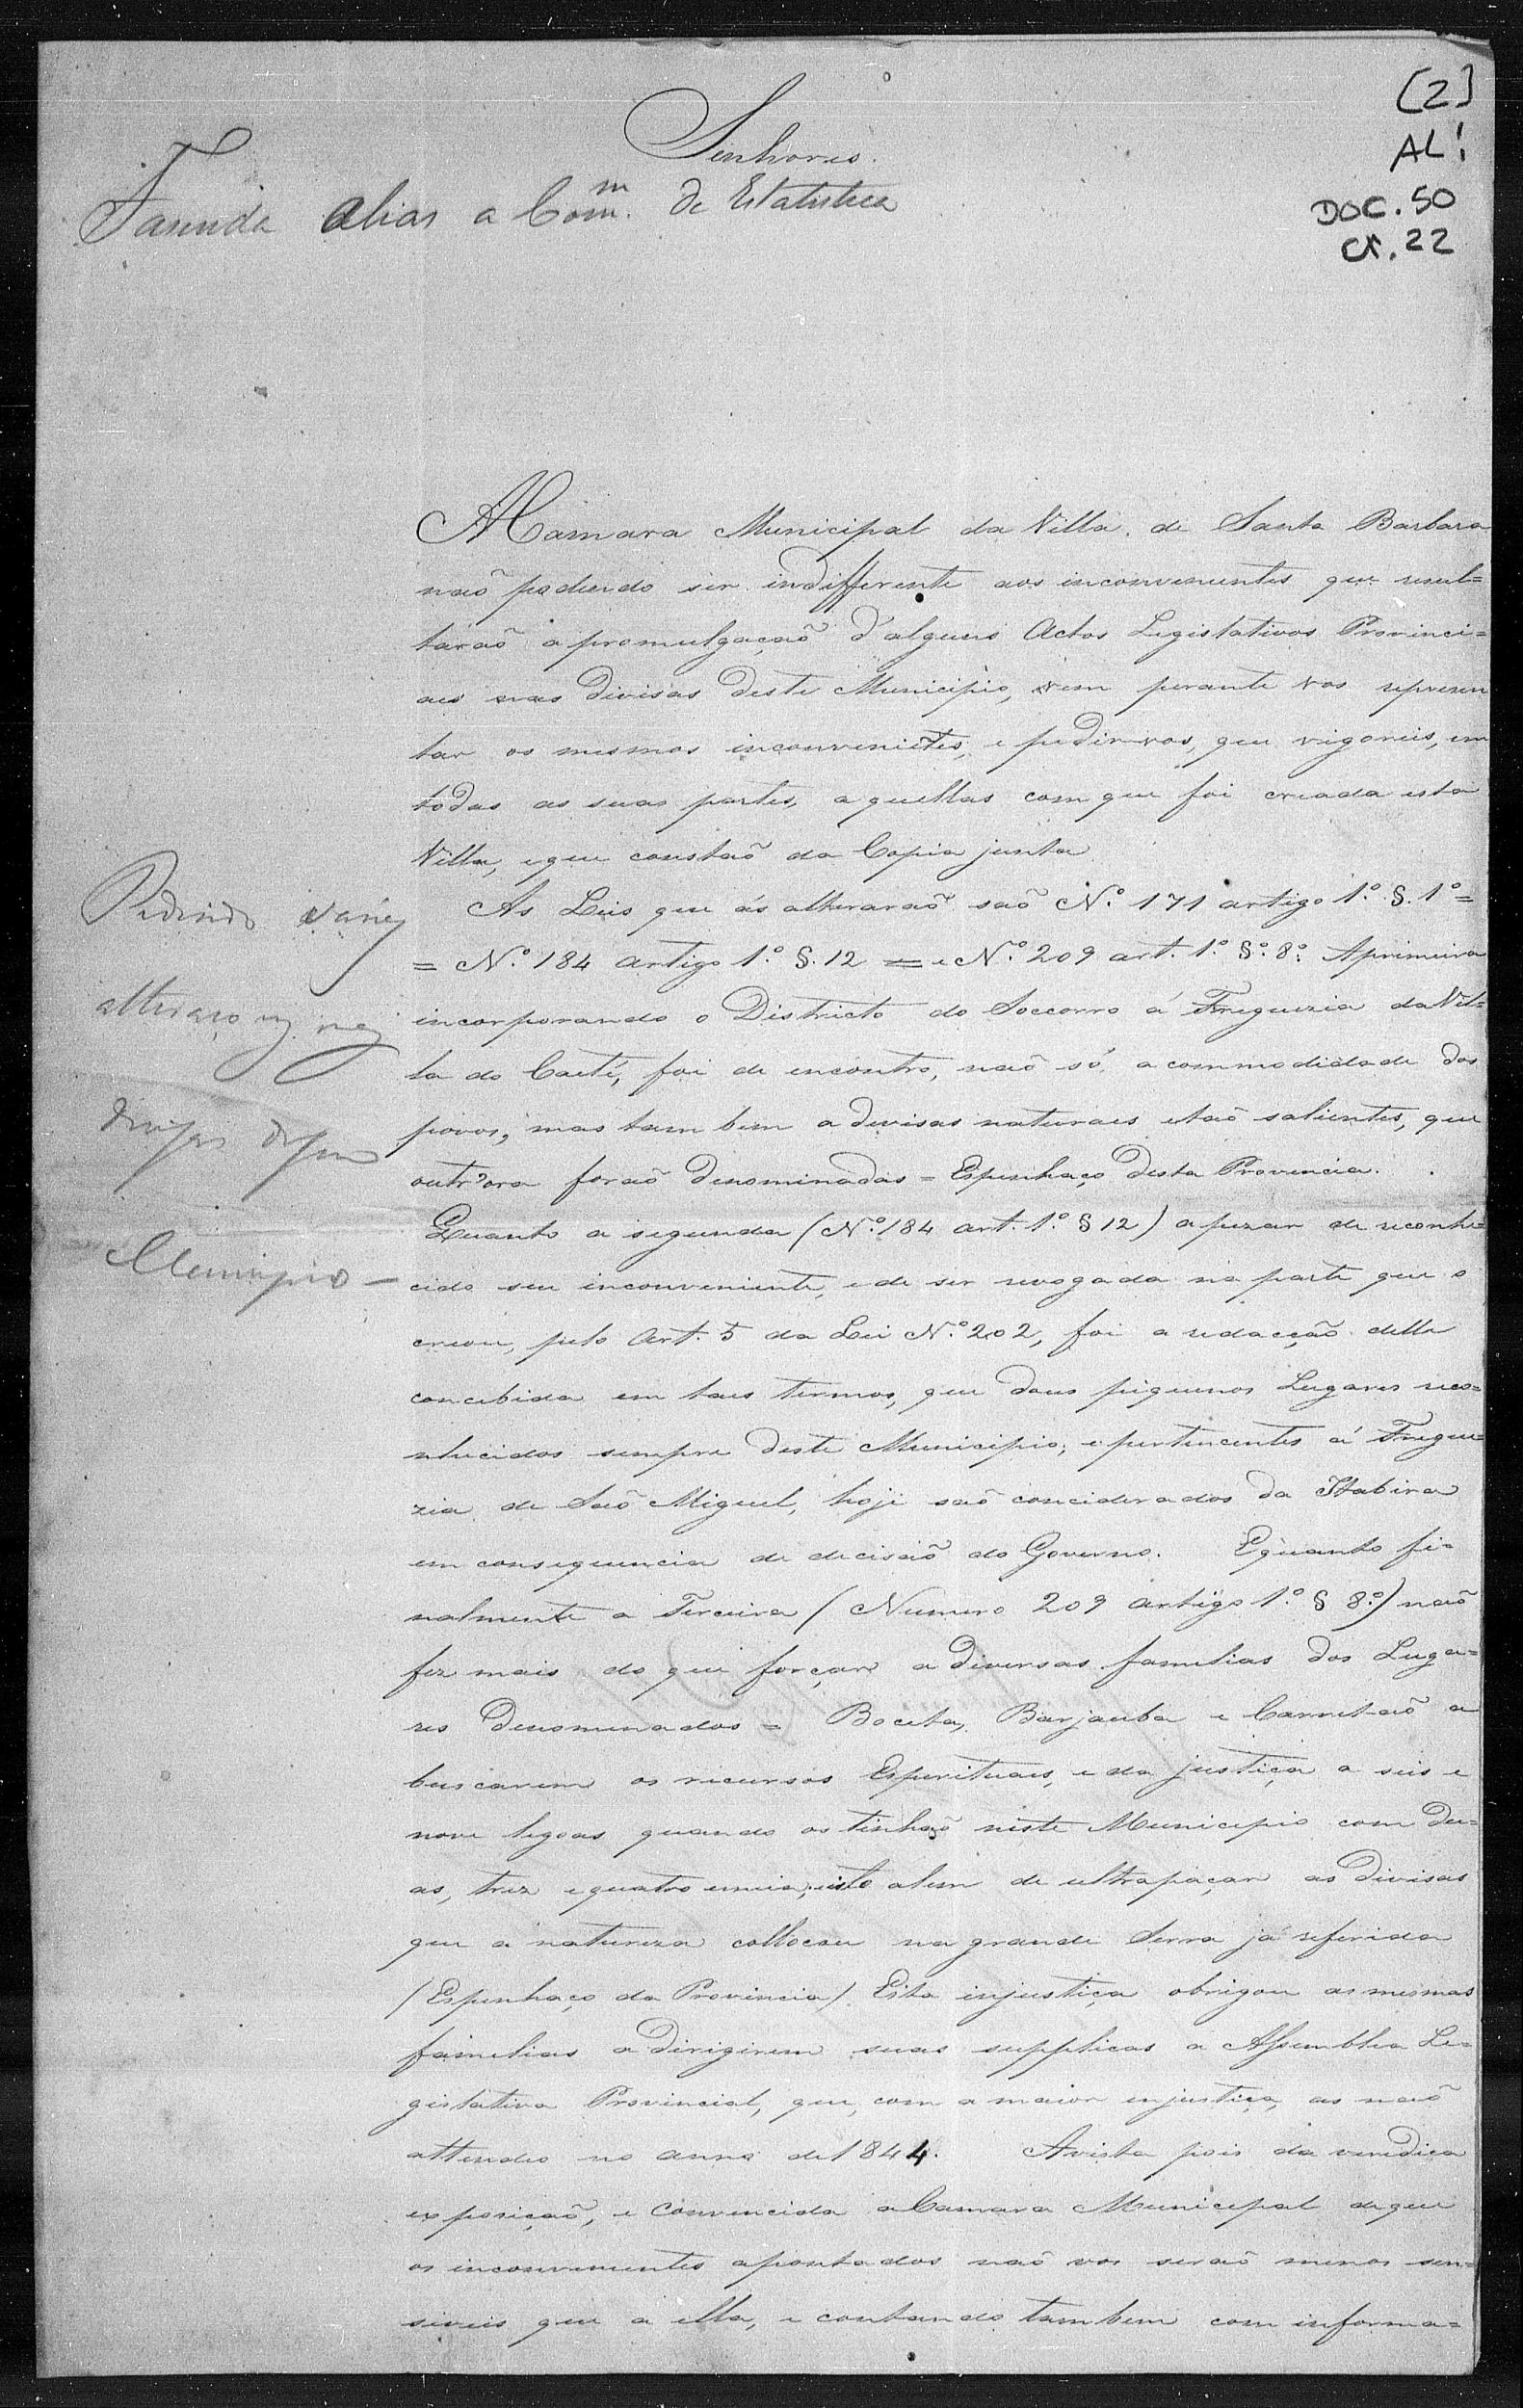 [2]
AL!
DOC. 50
CX. 22
Senhores.
Fasenda alias a Com.m de Estatistica
A Camara Municipal da Villa de Santa Barbara
naõ podendo ser indifferente aos inconvenientes que resul=
taraõ a promulgaçaõ d'alguns Actos Legislativos Provinci=
aes nas Divisas deste Municipio, vem perante vos represen
tar os mesmos inconveniẽtes, e pedir-vos, que vigoreis, em
todas as suas partes, aquellas com que foi creada esta
Villa, e que constaõ da Copia junta
As Leis que ás alteraraõ saõ N.º 171 artigo 1.º §. 1º =
= N.º 184 artigo 1.º §. 12 = e N.º 209 art. 1.º §.º 8.º Aprimeira
incorporando o Districto do Soccorro á Freguezia da Vil=
la do Caeté, foi de encontro, naõ só a commodidade dos
povos, mas tam bem a devisas naturaes etaõ salientes, que
outr'ora foraõ denominadas = Espinhaço desta Provincia.
Quanto a segunda (N.º 184 art. 1.º § 12) apezar de reconhe=
cido seu inconveniente, e de ser revogada na parte que o
creou, pelo Art. 5 da Lei N.º 202, foi a redacção della
concebida em taes termos, que dous piquenos Lugares reco=
nhecidos sempre deste Municipio, e pertencentes á Fregue=
zia de Saõ Miguel, hoje saõ conciderados da Itabira
em consequencia de decisaõ do Governo. Equanto fi=
nalmente a Terceira (Numero 209 artigo 1.º § 8.º) naõ
fez mais do que forçar a diversas familias dos Luga=
res denominados = Boceta, Barjauba e Carretaõ a
buscarem os recursos Esperituaes, e da justiça a seis e
nove legoas quando os tinhaõ neste Municipio com du=
as, trez e quatro emeia; isto alem de ultrapaçar as Divisas
que a natureza collocou na grande Serra já referida
(Espinhaço da Provincia). Esta injustiça obrigou as mesmas
familias a dirigirem suas supplicas a Assemblea Le=
gislativa Provincial, que, com a maior injustiça, as naõ
attendeo no anno de 1844. Avista pois da veridica
exposiçaõ, e convencida a Camara Municipal de que
os inconvenientes apontados naõ vos seraõ menos sen=
siveis que a ella, e contando tambem com informa=
Pedindo
Municipio —